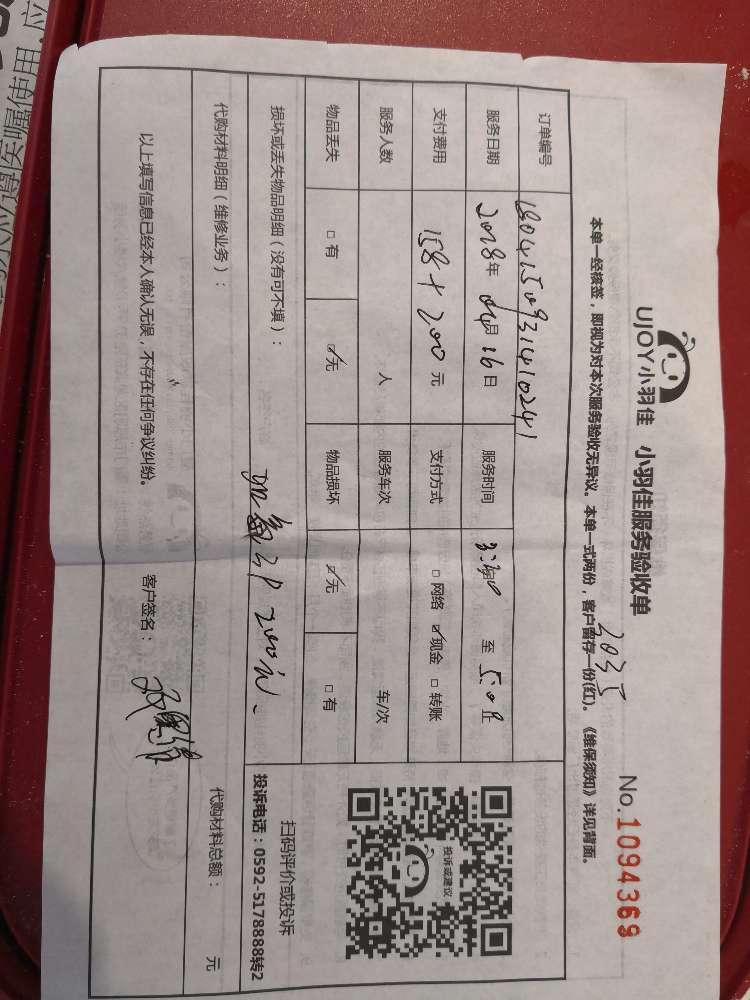 UJOY小羽佳 小羽佳服务验收单
No.1094369
2035
本单一经核签，即视为对本次服务验收无异议。本单一式两份，客户留存一份(红)。《维保须知》详见背面。
订单编号
服务日期 2018年04月16日 服务时间 3:30 至 5:0止
支付费用 158+200元 支付方式 □网络 ☑现金 □转账
服务人数 人 服务车次 车/次
物品丢失 □有 ☑无 物品损坏 ☑无 □有
损坏或丢失物品明细（没有可不填）：
加氟3P 200元、
代购材料明细（维修业务）：
代购材料总额： 元
投诉或建议
扫码评价或投诉
投诉电话：0592-5178888转2
以上填写信息已经本人确认无误，不存在任何争议纠纷。 客户签名：